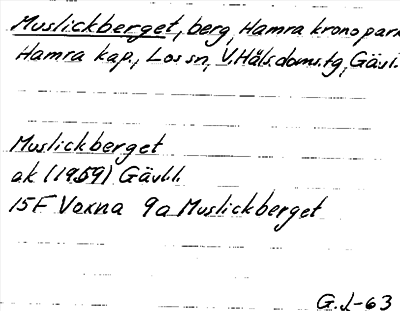 Muslickberget, berg, Hamra kronopark
Hamra kap., Los sn, V. Häls. doms.tg, Gävl.
Muslickberget
ak (1959) Gävl.l.
15F Voxna 9a Muslickberget
G.J-63